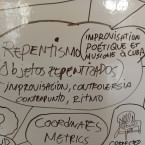 IMPROVISATION
POÉTIQUE ET
MUSICALE À CUBA
REPENTISMO
(OBJETOS REPENTIZADOS)
IMPROVISACIÓN, CONTROVERSIA
CONTRAPUNTO, RITMO
COORDINATES
METRICS